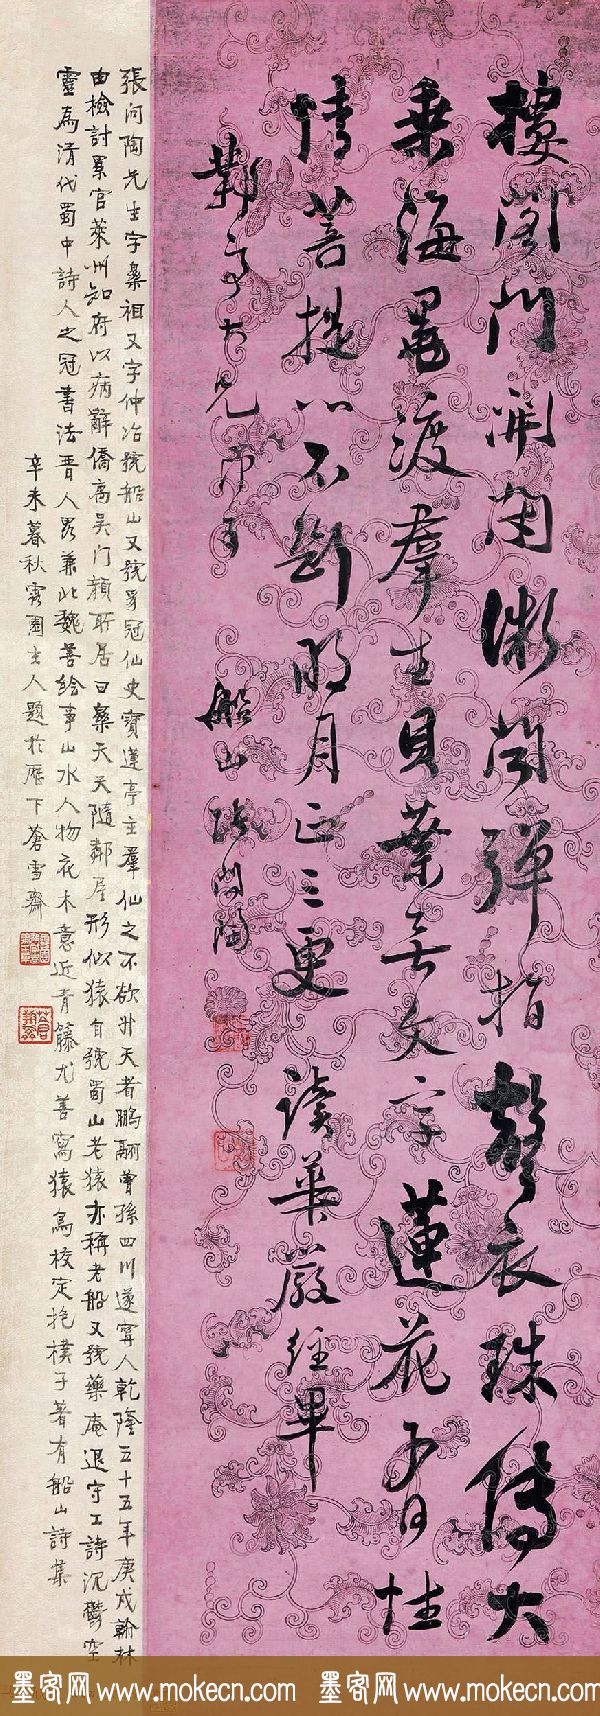 樓閣門開闔微聞彈指聲衣珠傳大
乘海渡羣生貝葉無文字蓮花有性
情菩提心不斷明月正三更 讀華嚴經畢
亭大兄 船山張問陶
張問陶先生字樂祖又字仲冶號船山又號蜀冠仙史寶蓮亭主羣仙之不欲升天者鵬翮曾孫四川遂寧人乾隆五十五年庚戌翰林
由檢討累官萊州知府以病辭僑寓吳門顏所居曰樂天天隨鄰屋形似猿自號蜀山老猿亦稱老船又號藥庵退守工詩沉鬱空
靈為清代蜀中詩人之冠書法晋人畧兼北魏善繪事山水人物花木意近青籐尤善寫猿為校定抱樸子著有船山詩集
辛未暮秋園主人題於歷下蒼雪齋
墨客网 www.mokecn.com 墨客网 www.mokecn.com